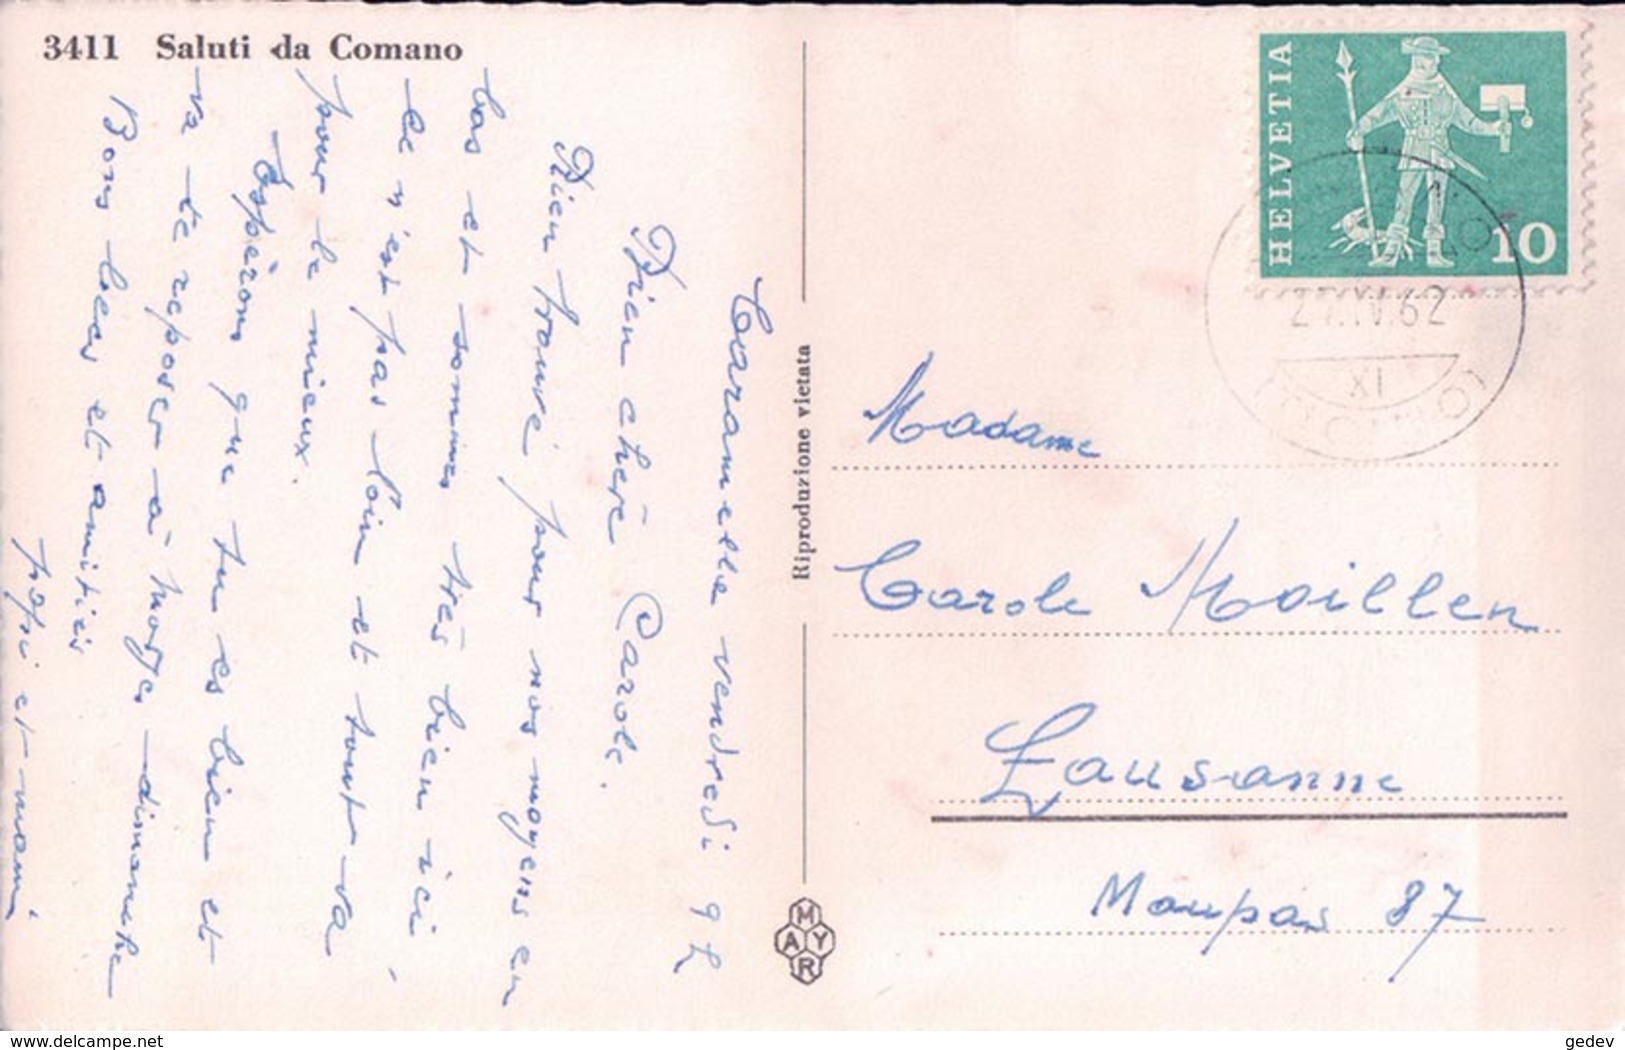 3411 Saluti da Comano
Caramelle vendredi 9 h
Bien chère Carole.
Bien trouvé pour nos moyens en
bas et sommes très bien ici
Ce n'est pas loin et tout va
pour le mieux.
Espérons que tu es bien et
va te reposer à Morges dimanche
Bons becs et amitiés
papi et mami
Riproduzione vietata
MAYR
HELVETIA
10
27.IV.62
XI
Madame
Carole Moillen
Lausanne
Maupas 87
www.delcampe.net
gedev